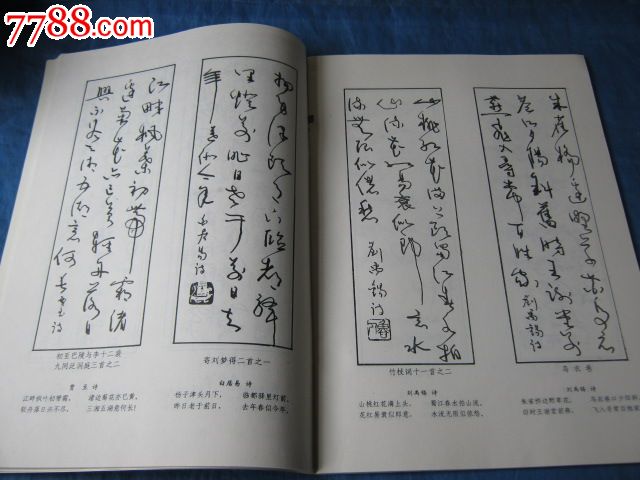 7788.com
江畔枫叶初带霜渚
边菊花亦已黄轻舟落日
兴不尽三湘五湖意何长 贾至诗
初至巴陵与李十二裴
九同泛洞庭三首之二
贾至 诗
江畔枫叶初带霜,渚边菊花亦已黄。
轻舟落日兴不尽,三湘五湖意何长!
杨子津头月下临都驿
里灯前昨日老于前日去
年春似今年 白居易诗
寄刘梦得二首之一
白居易 诗
杨子津头月下,临都驿里灯前。
昨日老于前日,去年春似今年。
山桃红花满上头蜀江春水拍
山流花红易衰似郎意水
流无限似侬愁 刘禹锡诗
竹枝词十一首之二
刘禹锡 诗
山桃红花满上头,蜀江春水拍山流。
花红易衰似郎意,水流无限似侬愁。
朱雀桥边野草花乌衣
巷口夕阳斜旧时王谢堂前
燕飞入寻常百姓家 刘禹锡诗
乌衣巷
刘禹锡 诗
朱雀桥边野草花,乌衣巷口夕阳斜。
旧时王谢堂前燕,飞入寻常百姓家。